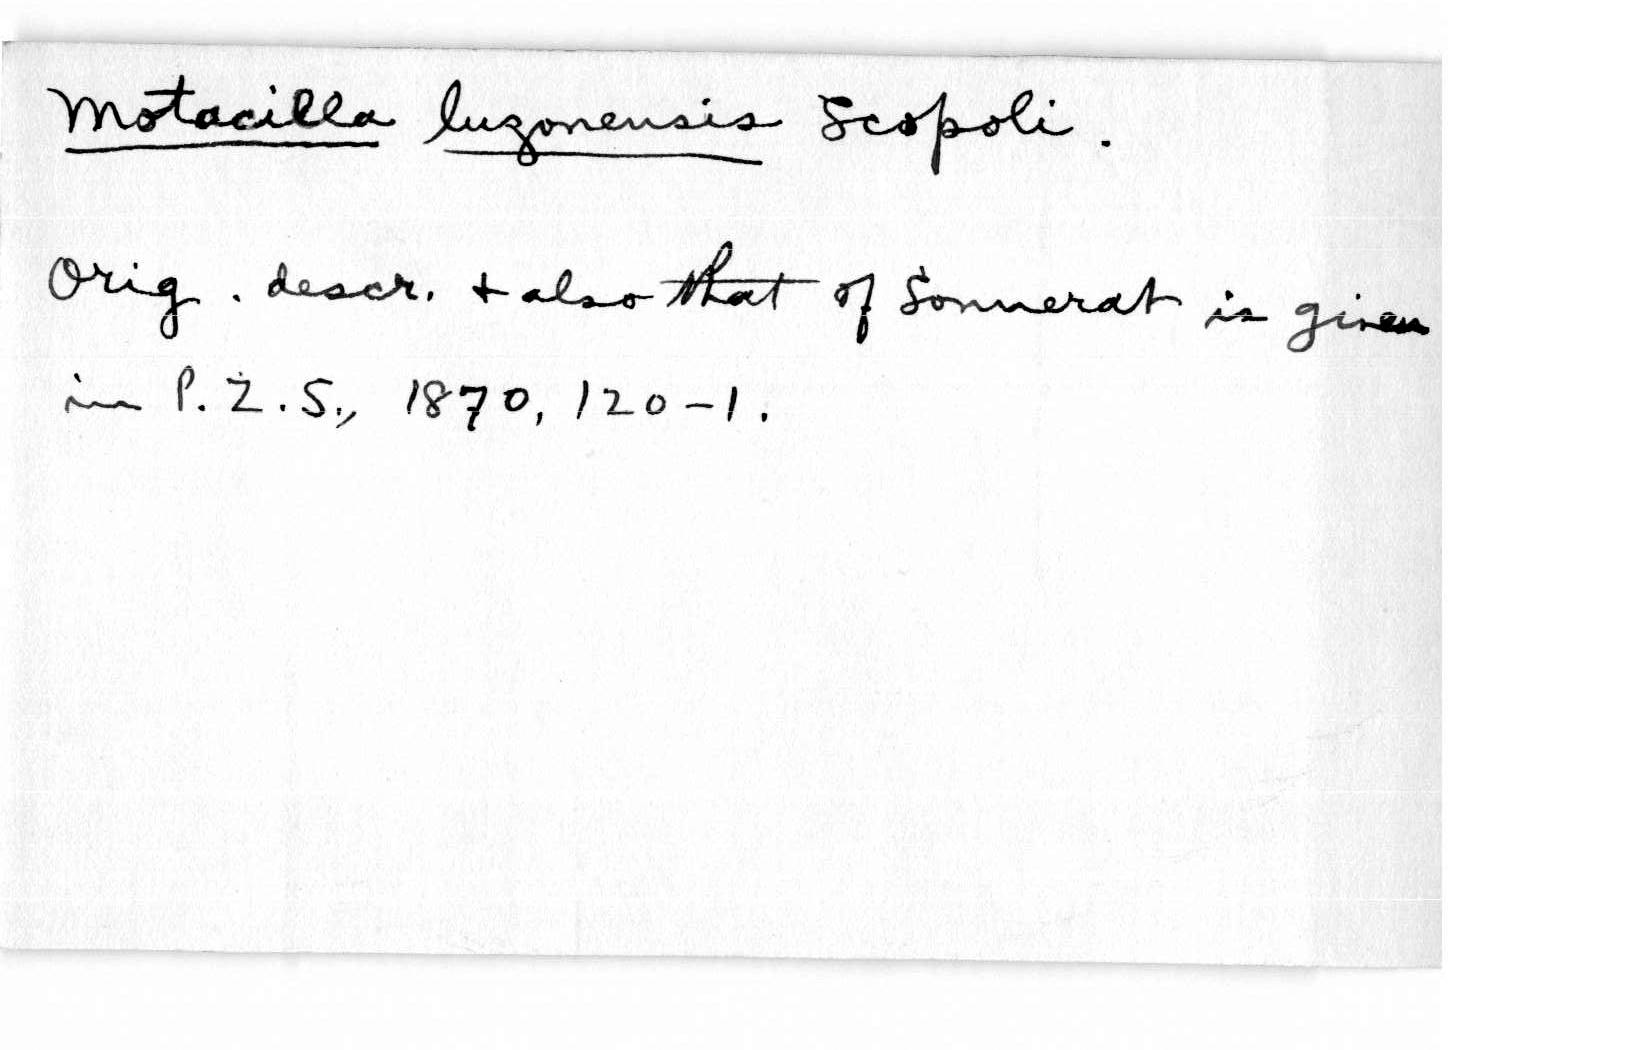 Motacilla luzonensis Scopoli.
Orig. descr. + also that of Sonnerat is given
in P.Z.S., 1870, 120-1.